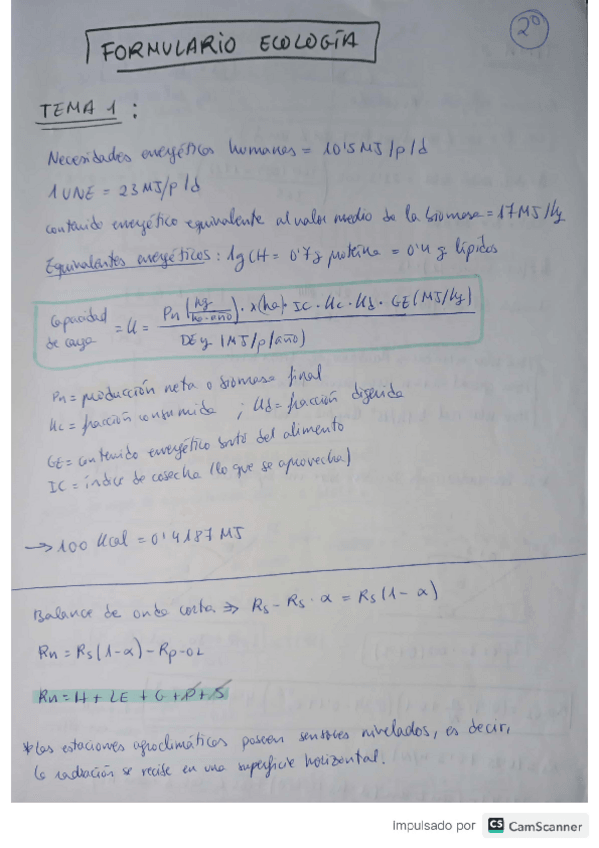 2º
FORMULARIO ECOLOGÍA
TEMA 1 :
Necesidades energéticas humanas = 10'5 MJ/p/d
1 UNE = 23 MJ/p/d
contenido energético equivalente al valor medio de la biomasa = 17 MJ/kg
Equivalentes energéticos: 1g CH = 0'7 g proteína = 0'4 g lípidos
Capacidad de carga = K = Pn (kg/ha·año) · x(ha) · IC · Kc · Kd · GE (MJ/kg) / DEy (MJ/p/año)
Pn = producción neta o biomasa final
Kc = fracción consumida ; Kd = fracción digerida
GE = contenido energético bruto del alimento
IC = índice de cosecha (lo que se aprovecha)
→ 100 Kcal = 0'4187 MJ
Balance de onda corta ⇒ Rs - Rs · α = Rs (1 - α)
Rn = Rs (1 - α) - Rp-OL
Rn = H + LE + G + P + S
* Las estaciones agroclimáticas poseen sensores nivelados, es decir,
la radiación se recibe en una superficie horizontal.
Impulsado por CS CamScanner